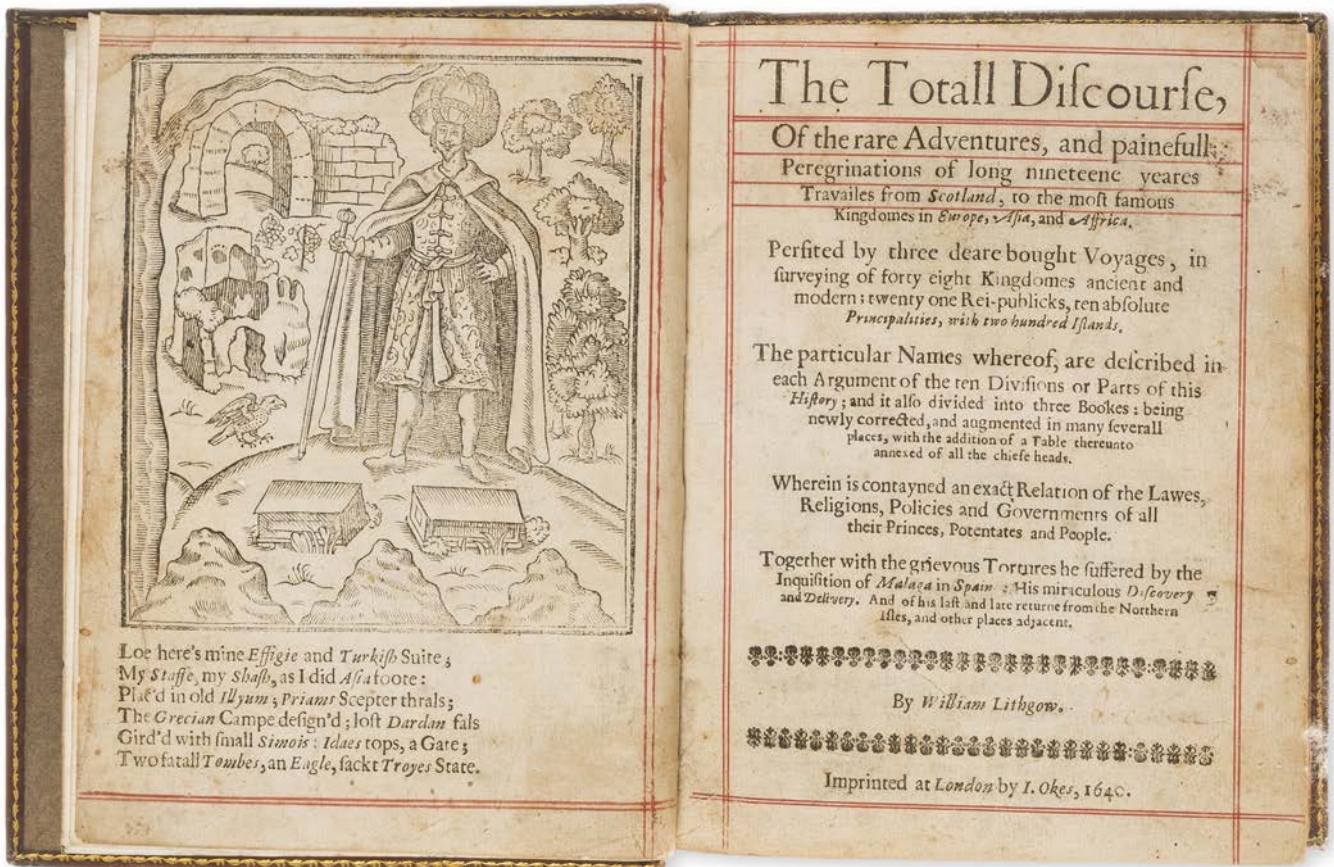 Loe here's mine Effigie and Turkiſh Suite;
My Staffe, my Shaſh, as I did Aſia foote:
Plac'd in old Illyum; Priams Scepter thrals;
The Grecian Campe deſign'd; loſt Dardan fals
Gird'd with ſmall Simois: Idaes tops, a Gate;
Two fatall Tombes, an Eagle, ſackt Troyes State.
The Totall Diſcourſe,
Of the rare Adventures, and painefull
Peregrinations of long nineteene yeares
Travailes from Scotland, to the moſt famous
Kingdomes in Europe, Aſia, and Affrica.
Perfited by three deare bought Voyages, in
ſurveying of forty eight Kingdomes ancient and
modern; twenty one Rei-publicks, ten abſolute
Principalities, with two hundred Iſlands.
The particular Names whereof, are deſcribed in
each Argument of the ten Diviſions or Parts of this
Hiſtory; and it alſo divided into three Bookes: being
newly corrected, and augmented in many ſeverall
places, with the addition of a Table thereunto
annexed of all the chiefe heads.
Wherein is contayned an exact Relation of the Lawes,
Religions, Policies and Governments of all
their Princes, Potentates and People.
Together with the grievous Tortures he ſuffered by the
Inquiſition of Malaga in Spain: His miraculous Diſcovery
and Delivery. And of his laſt and late returne from the Northern
Iſles, and other places adjacent.
By William Lithgow.
Imprinted at London by I. Okes, 1640.